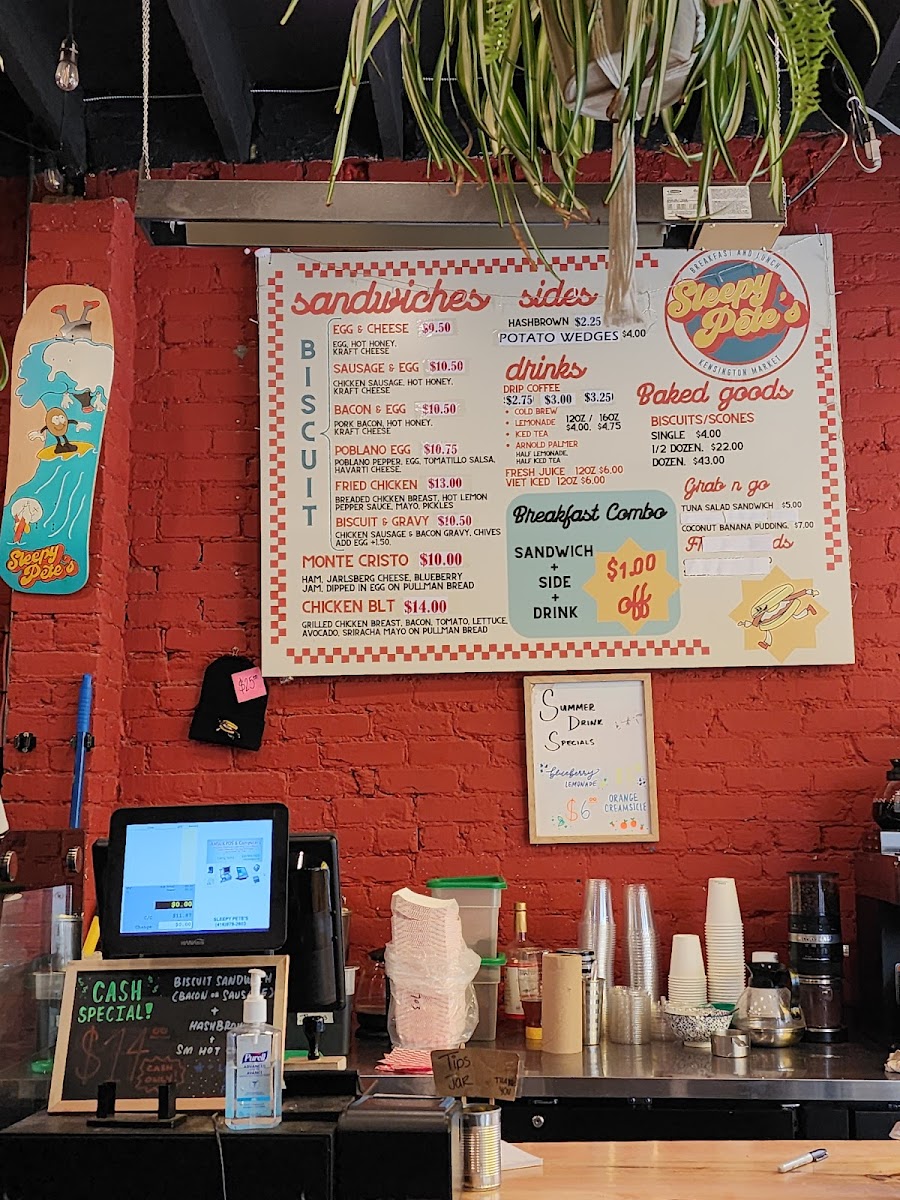 sandwiches
BISCUIT
EGG & CHEESE $9.50
EGG, HOT HONEY,
KRAFT CHEESE
SAUSAGE & EGG $10.50
CHICKEN SAUSAGE, HOT HONEY,
KRAFT CHEESE
BACON & EGG $10.50
PORK BACON, HOT HONEY,
KRAFT CHEESE
POBLANO EGG $10.75
POBLANO PEPPER, EGG, TOMATILLO SALSA,
HAVARTI CHEESE.
FRIED CHICKEN $13.00
BREADED CHICKEN BREAST, HOT LEMON
PEPPER SAUCE, MAYO, PICKLES
BISCUIT & GRAVY $10.50
CHICKEN SAUSAGE & BACON GRAVY, CHIVES
ADD EGG +1.50.
MONTE CRISTO $10.00
HAM, JARLSBERG CHEESE, BLUEBERRY
JAM, DIPPED IN EGG ON PULLMAN BREAD
CHICKEN BLT $14.00
GRILLED CHICKEN BREAST, BACON, TOMATO, LETTUCE,
AVOCADO, SRIRACHA MAYO ON PULLMAN BREAD
sides
HASHBROWN $2.25
POTATO WEDGES $4.00
drinks
DRIP COFFEE
$2.75 $3.00 $3.25
• COLD BREW
• LEMONADE 12OZ / 16OZ
• ICED TEA $4.00, $4.75
• ARNOLD PALMER
HALF LEMONADE,
HALF ICED TEA
FRESH JUICE 12OZ $6.00
VIET ICED 12OZ $6.00
Breakfast Combo
SANDWICH
+
SIDE
+
DRINK
$1.00
off
BREAKFAST AND LUNCH
Sleepy
Pete's
KENSINGTON MARKET
Baked goods
BISCUITS/SCONES
SINGLE $4.00
1/2 DOZEN. $22.00
DOZEN. $43.00
Grab n go
TUNA SALAD SANDWICH $5.00
COCONUT BANANA PUDDING. $7.00
Sleepy
Pete's
$25
SUMMER
DRINK
SPECIALS
blueberry
LEMONADE
$6.00
ORANGE
CREAMSICLE
$0.00
C/C
Change $0.00
SLEEPY PETE'S
CASH
SPECIAL!
$14
CASH
ONLY
BISCUIT SANDWICH
(BACON OR SAUSAGE)
+
HASHBROWN
+
SM HOT
Purell
TIPS
JAR
THANK
YOU